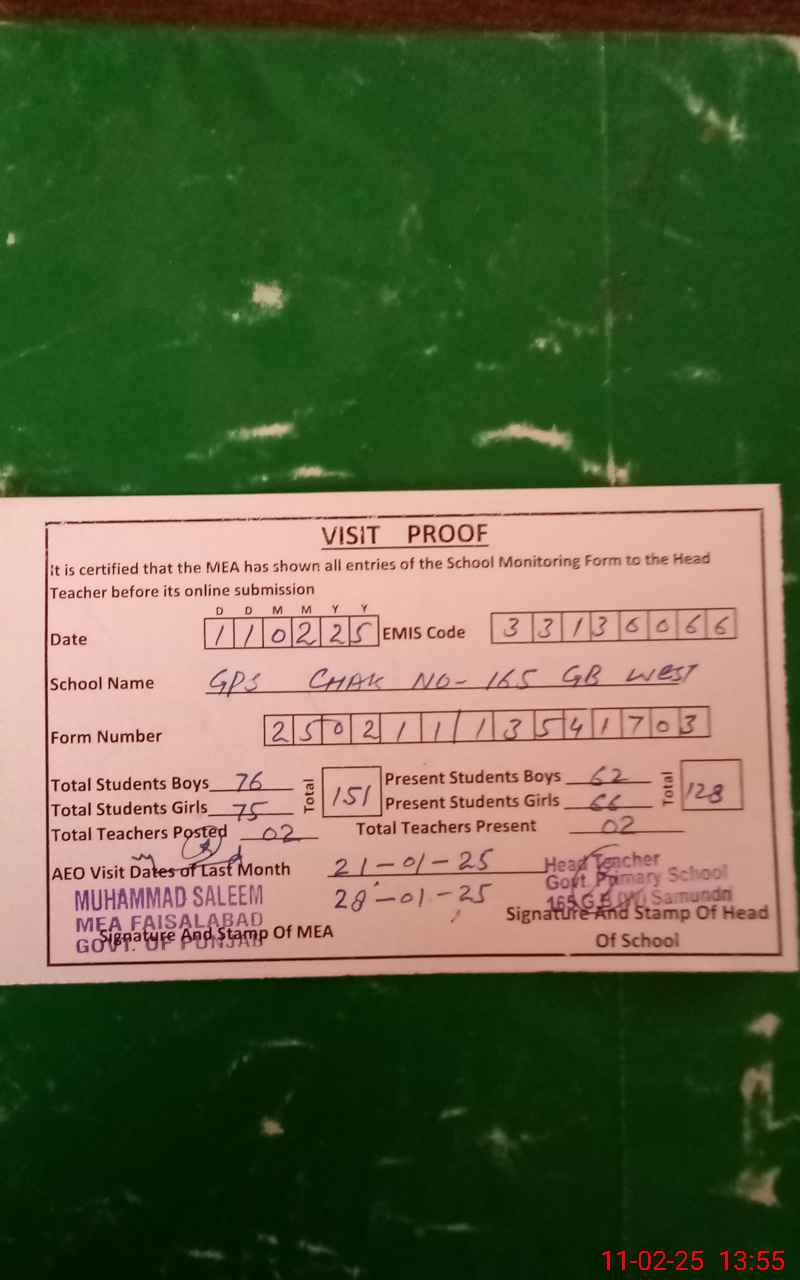 VISIT PROOF
It is certified that the MEA has shown all entries of the School Monitoring Form to the Head
Teacher before its online submission
D D M M Y Y
Date 110225 EMIS Code 33136066
School Name GPS CHAK NO- 165 GB WEST
Form Number 25021113541703
Total Students Boys 76 Total 151 Present Students Boys 62 Total 128
Total Students Girls 75 Present Students Girls 66
Total Teachers Posted 02 Total Teachers Present 02
AEO Visit Dates of Last Month 21-01-25
28-01-25
MUHAMMAD SALEEM
MEA FAISALABAD
GOVT. OF PUNJAB
Signature And Stamp Of MEA
Head Teacher
Govt. Primary School
165 G.B Samundri
Signature And Stamp Of Head
Of School
11-02-25 13:55